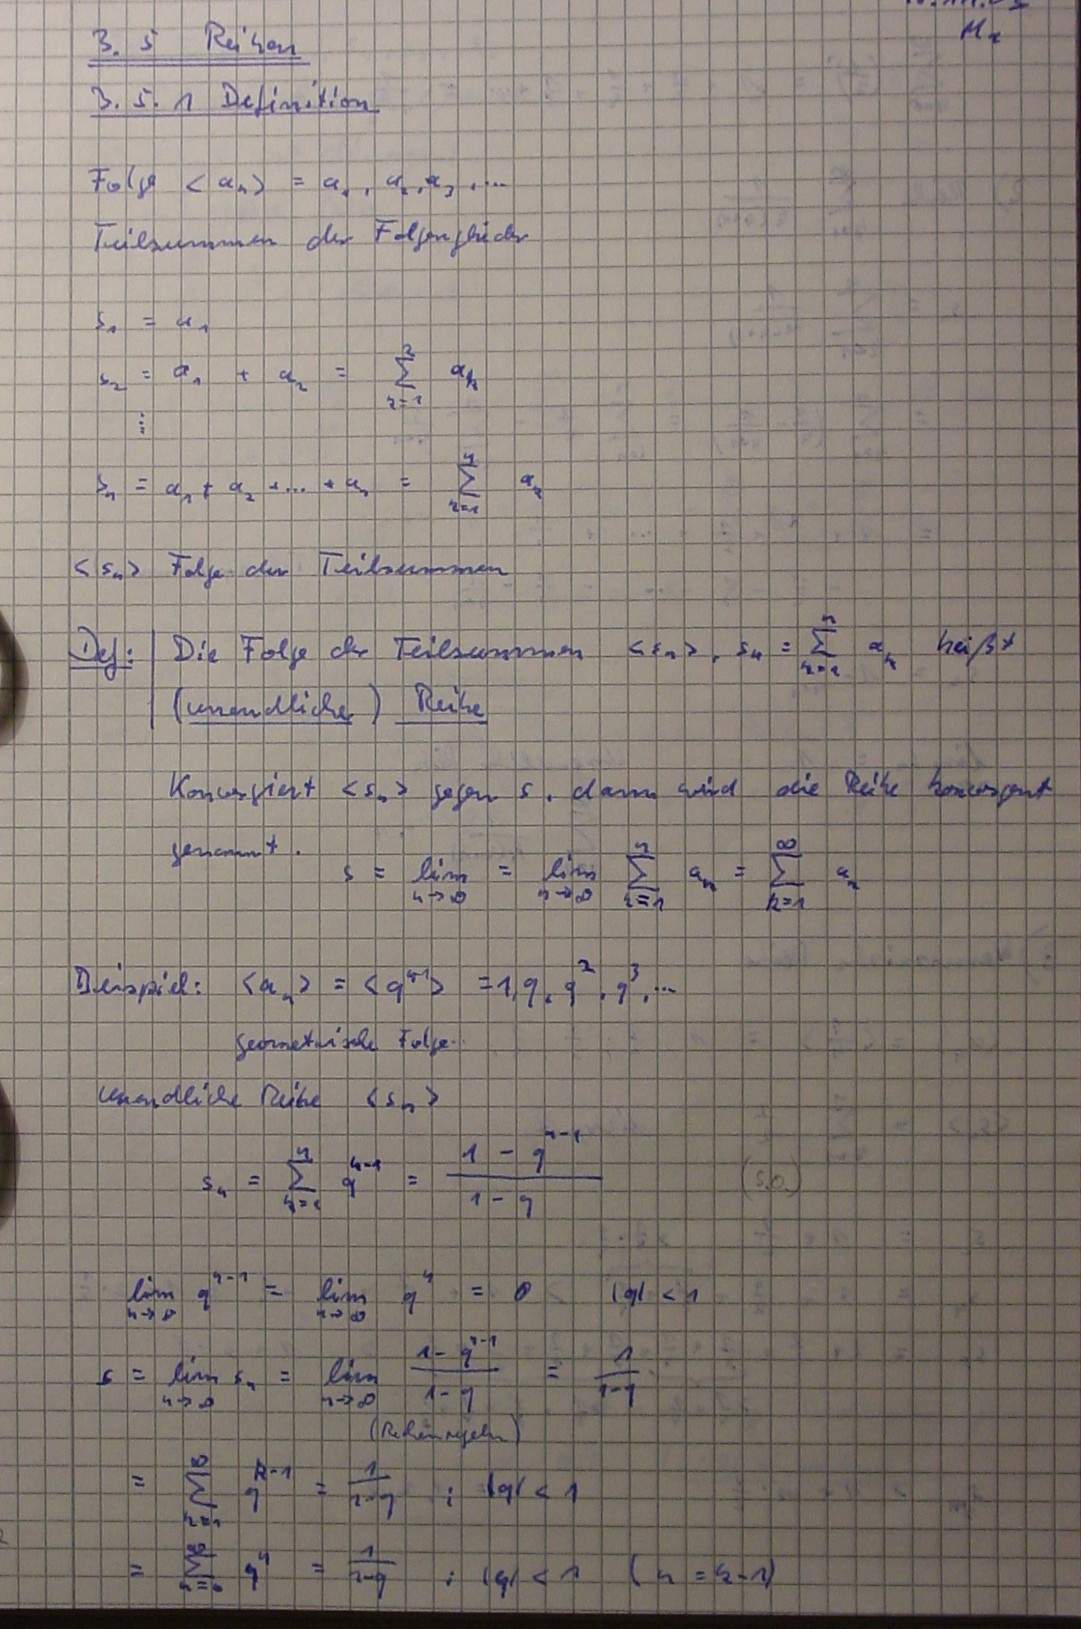 Mx
3.5 Reihen
3.5.1 Definition
Folge <aₙ> = a₁, a₂, a₃, ...
Teilsummen der Folgenglieder
s₁ = a₁
s₂ = a₁ + a₂ = ∑_{k=1}^{2} aₖ
⋮
sₙ = a₁ + a₂ + ... + aₙ = ∑_{k=1}^{n} aₖ
<sₙ> Folge der Teilsummen
Def: Die Folge der Teilsummen <sₙ>, sₙ = ∑_{k=1}^{n} aₖ heißt
(unendliche) Reihe
Konvergiert <sₙ> gegen s, dann wird die Reihe konvergent
genannt.
s = lim_{n→∞} = lim_{n→∞} ∑_{k=1}^{n} aₖ = ∑_{k=1}^{∞} aₖ
Beispiel: <aₙ> = <qⁿ⁻¹> = 1, q, q², q³, ...
geometrische Folge
unendliche Reihe <sₙ>
sₙ = ∑_{k=1}^{n} q^{k-1} = (1 - q^{n-1}) / (1 - q) (s.o.)
lim_{n→∞} q^{n-1} = lim_{n→∞} qⁿ = 0 |q| < 1
s = lim_{n→∞} sₙ = lim_{n→∞} (1 - q^{n-1}) / (1 - q) = 1 / (1-q)
(Rechenregeln)
= ∑_{k=1}^{∞} q^{k-1} = 1 / (1-q) ; |q| < 1
= ∑_{n=0}^{∞} qⁿ = 1 / (1-q) ; |q| < 1 (n = k-1)